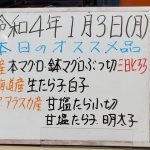 令和4年1月3日(月)
本日のオススメ品
産 本マグロ・鉢マグロぶつ切
北海道産 生たら子 白子
アラスカ産 甘塩たら小切
甘塩たら子 明太子